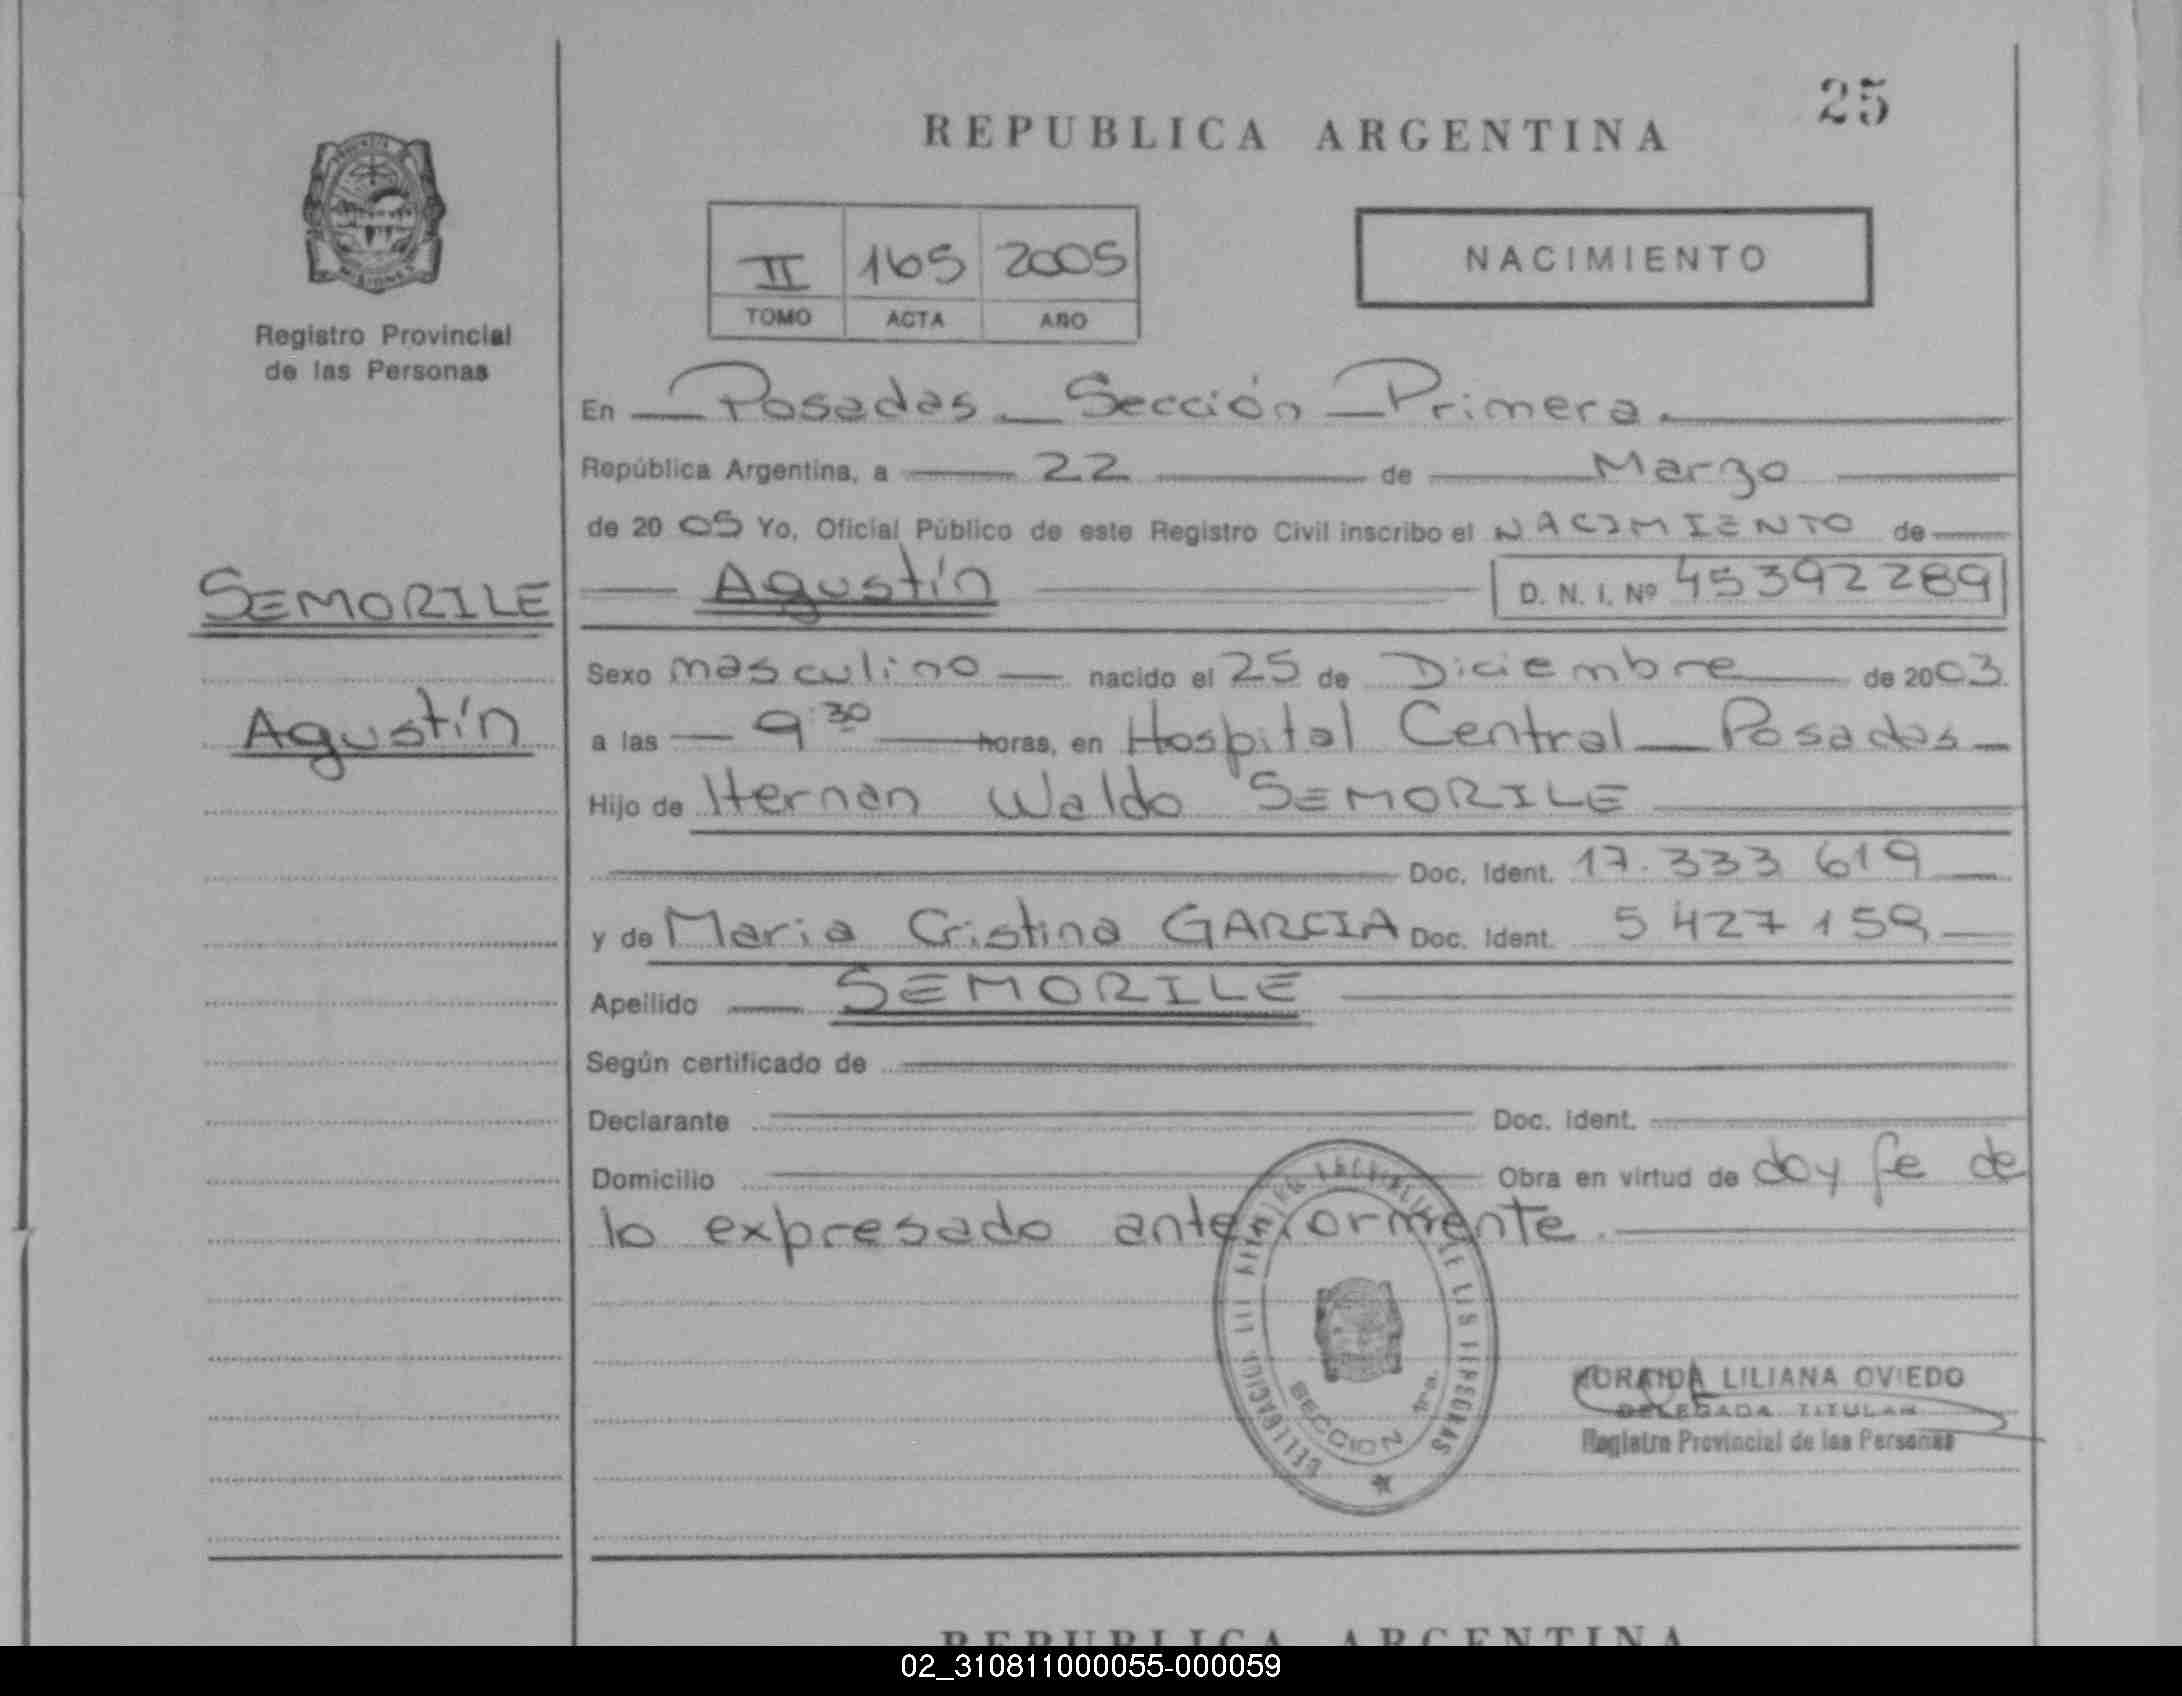 25
REPUBLICA ARGENTINA
II 165 2005
TOMO ACTA AÑO
NACIMIENTO
Registro Provincial
de las Personas
En Posadas Sección Primera.
República Argentina, a 22 de Marzo
de 2005 Yo, Oficial Público de este Registro Civil inscribo el NACIMIENTO de
SEMORILE
Agustín D. N. I. Nº 45392289
Sexo masculino nacido el 25 de Diciembre de 2003.
Agustín
a las 9.30 horas, en Hospital Central Posadas
Hijo de Hernan Waldo SEMORILE
Doc. Ident. 17.333 619
y de Maria Cristina GARCIA Doc. Ident. 5 427 159
Apellido SEMORILE
Según certificado de
Declarante Doc. Ident.
Domicilio Obra en virtud de doy fe de
lo expresado anteriormente.
DE LAS PERSONAS
SECCION 1ra.
LILIANA OVIEDO
DELEGADA TITULAR
Registro Provincial de las Personas
REPUBLICA ARGENTINA
02_310811000055-000059